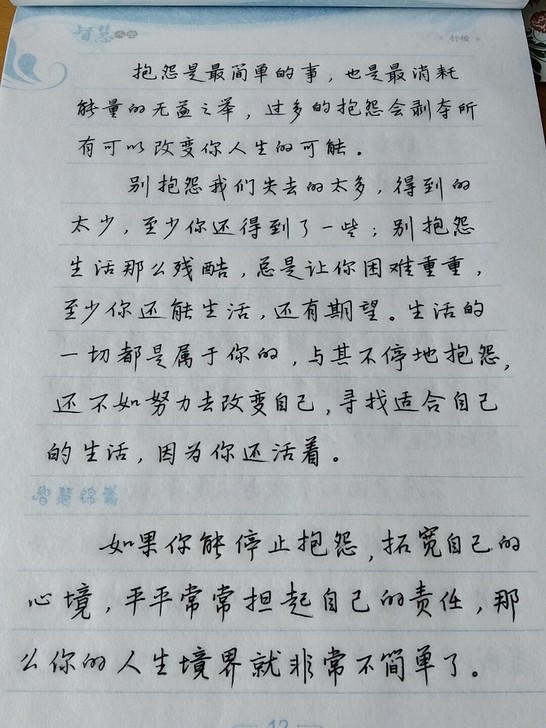 智慧人生
行楷
抱怨是最简单的事，也是最消耗
能量的无益之举，过多的抱怨会剥夺所
有可以改变你人生的可能。
别抱怨我们失去的太多，得到的
太少，至少你还得到了一些；别抱怨
生活那么残酷，总是让你困难重重，
至少你还能生活，还有期望。生活的
一切都是属于你的，与其不停地抱怨，
还不如努力去改变自己，寻找适合自己
的生活，因为你还活着。
智慧锦囊
如果你能停止抱怨，拓宽自己的
心境，平平常常担起自己的责任，那
么你的人生境界就非常不简单了。
12